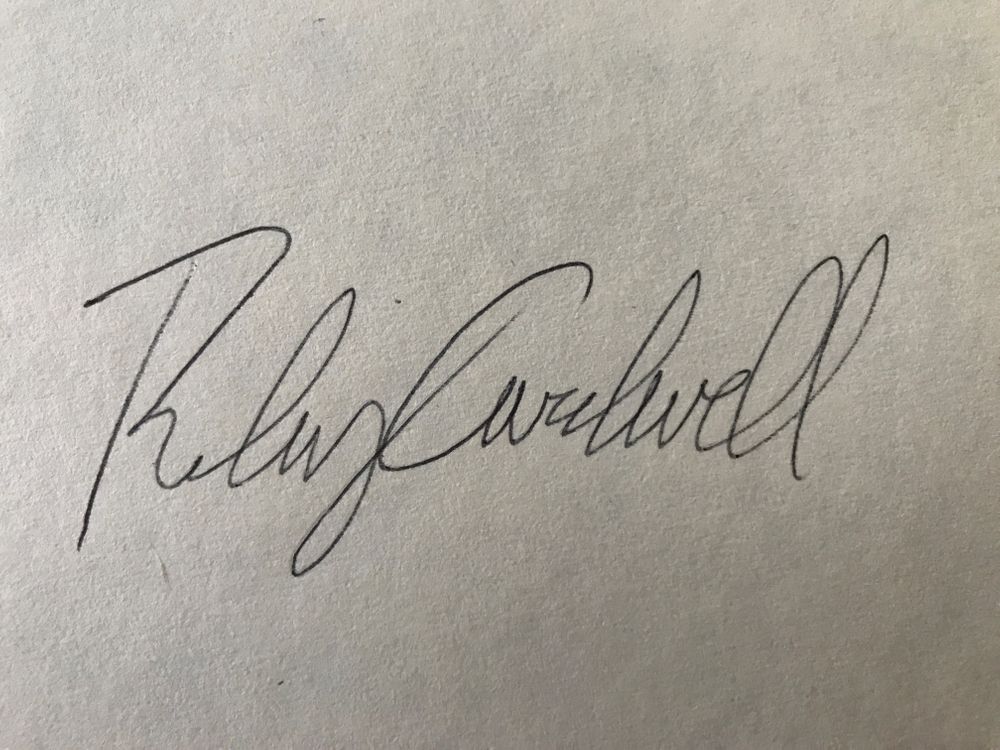 Riley Cardwell